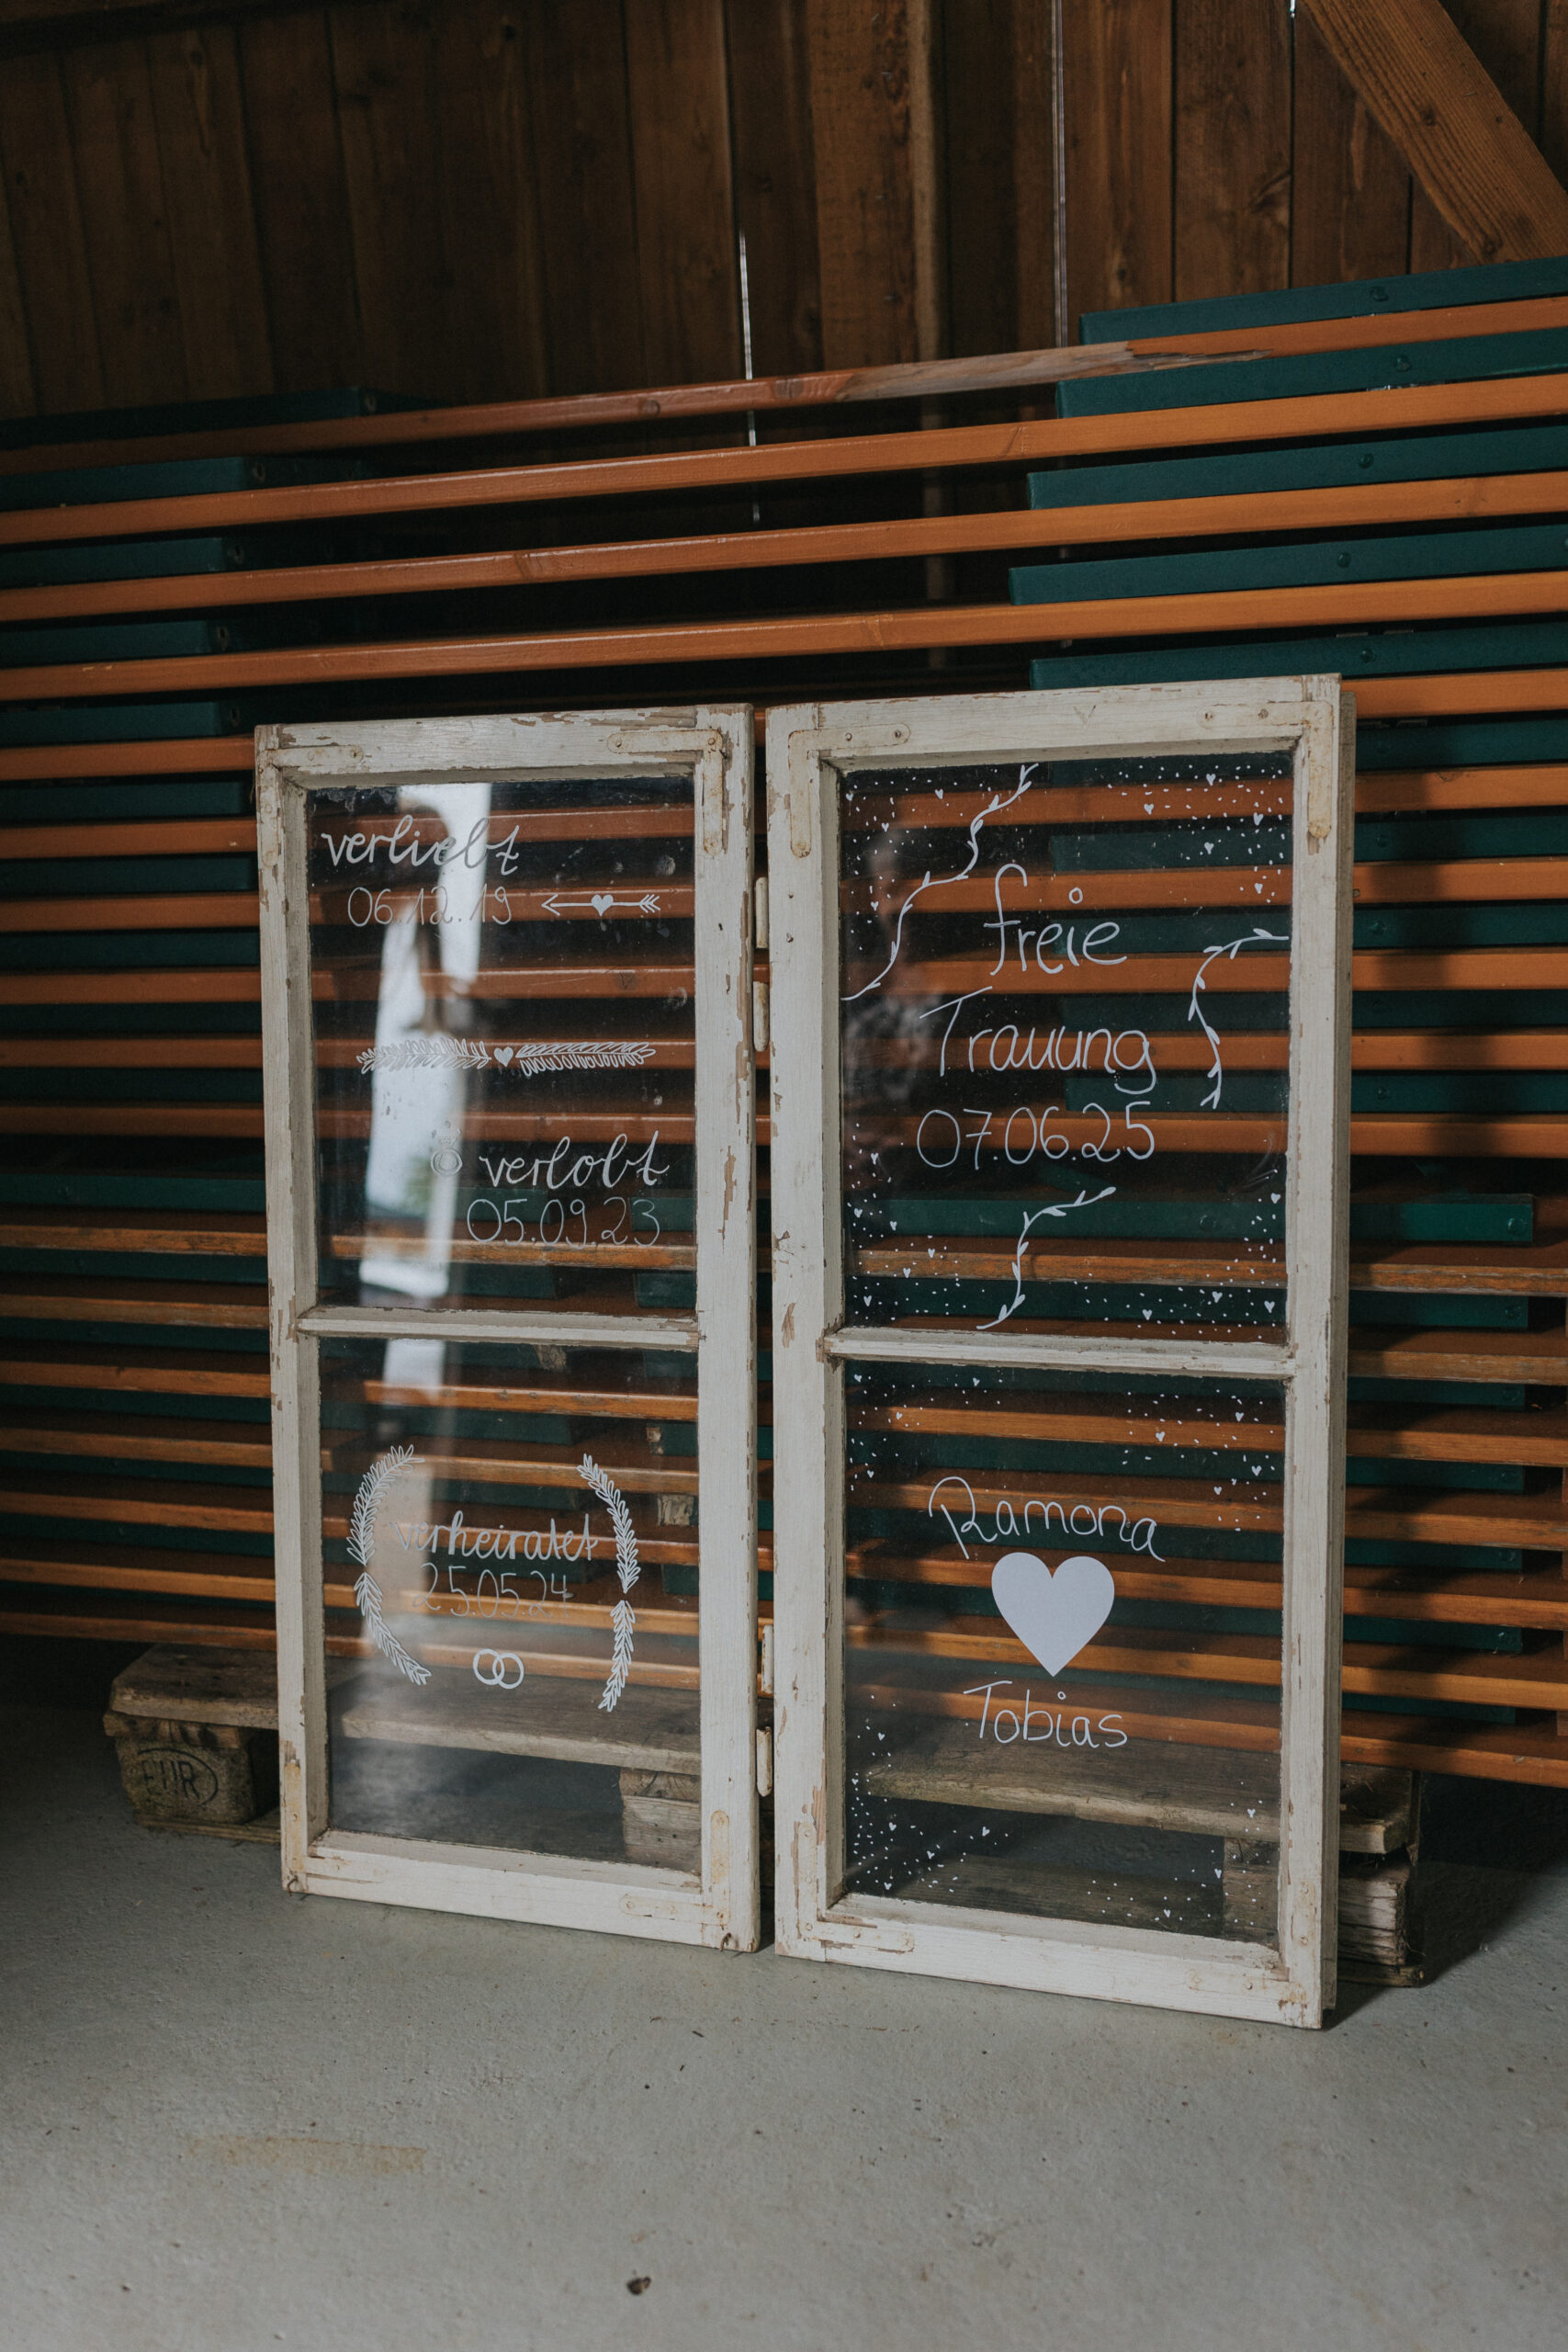 verliebt
06.12.19
verlobt
05.09.23
verheiratet
25.05.24
freie
Trauung
07.06.25
Ramona
Tobias
EUR